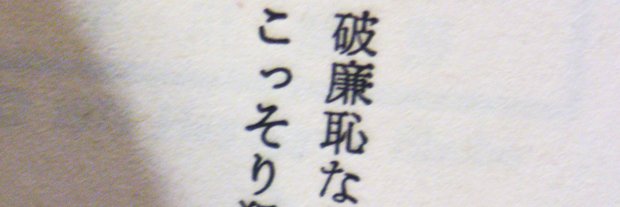 破廉恥な
こっそり